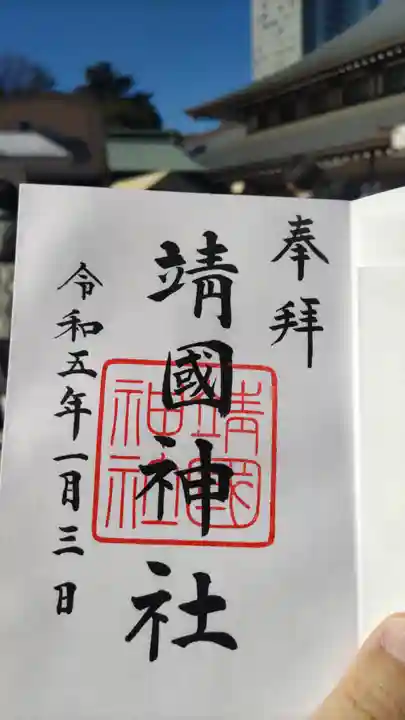 奉拝
靖國神社
靖國
神社
令和五年一月三日